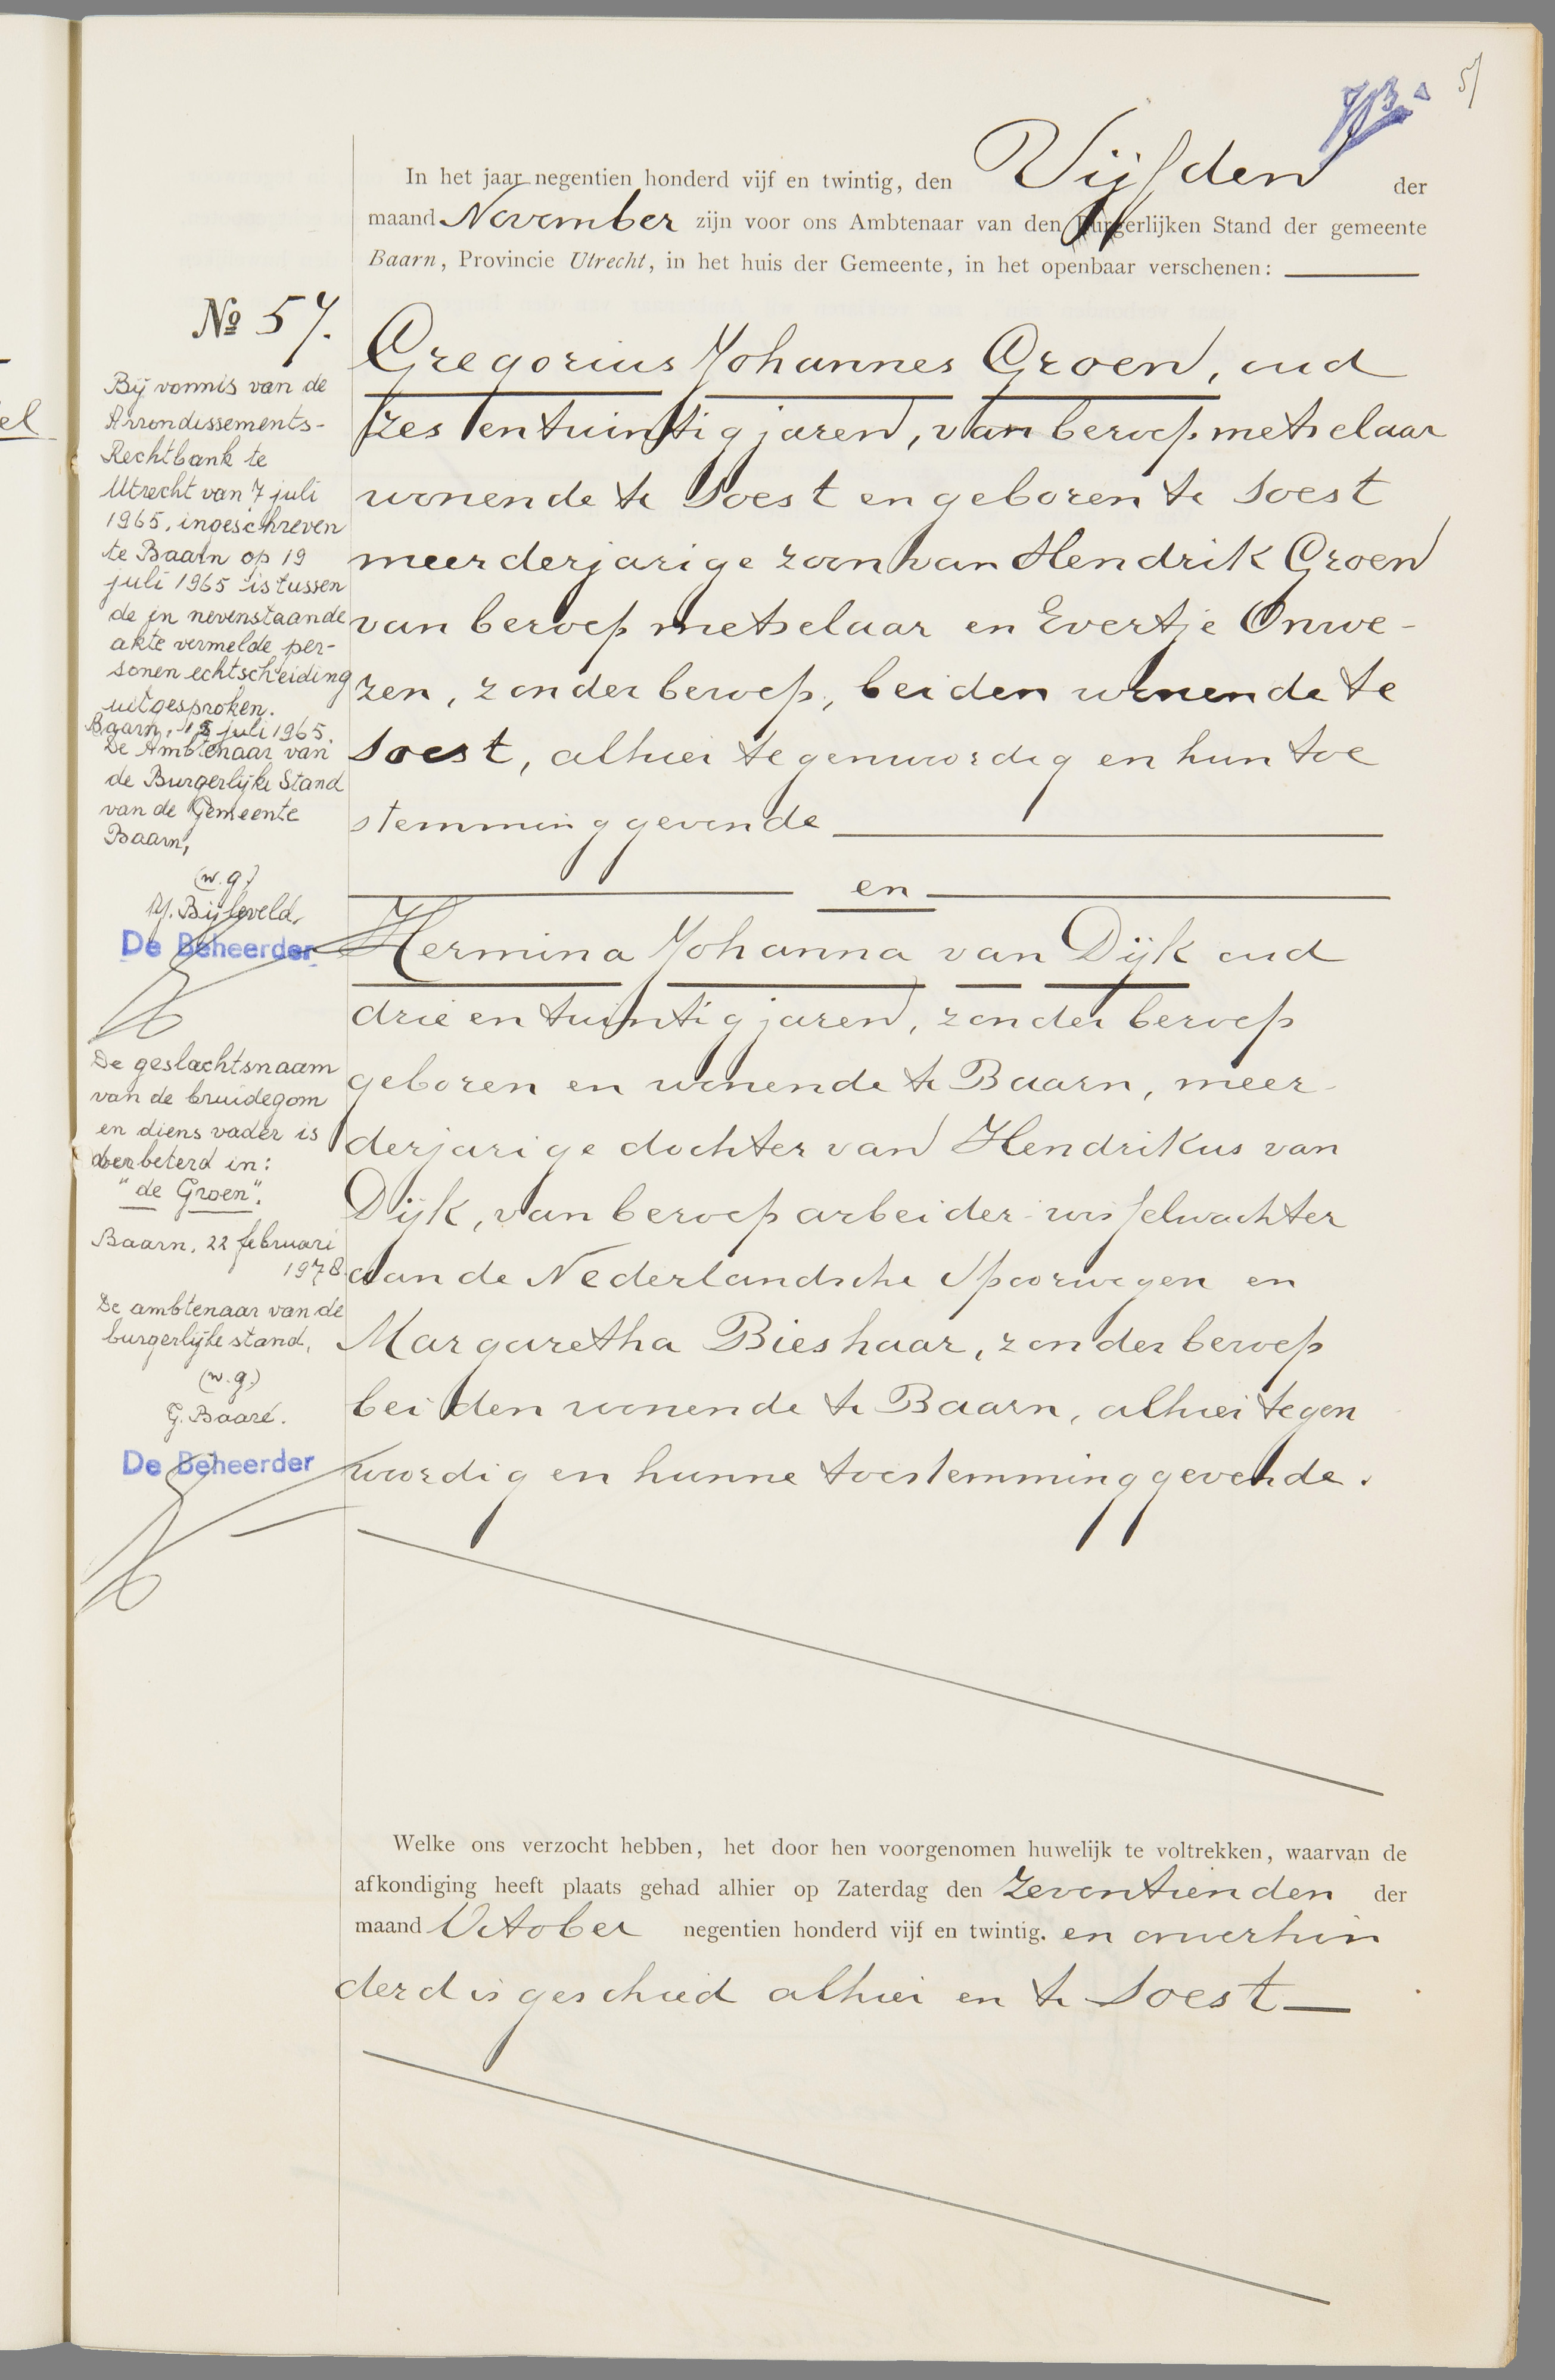 57
In het jaar negentien honderd vijf en twintig, den Vijfden der
maand November zijn voor ons Ambtenaar van den Burgerlijken Stand der gemeente
Baarn, Provincie Utrecht, in het huis der Gemeente, in het openbaar verschenen:
No 57.
Gregorius Johannes Groen, oud
zes en twintig jaren, van beroep metselaar
wonende te Soest en geboren te Soest
meerderjarige zoon van Hendrik Groen
van beroep metselaar en Evertje Onwe-
zen, zonder beroep, beiden wonende te
Soest, alhier tegenwoordig en hun toe
stemming gevende
en
Hermina Johanna van Dijk oud
drie en twintig jaren, zonder beroep
geboren en wonende te Baarn, meer-
derjarige dochter van Hendrikus van
Dijk, van beroep arbeider-wisselwachter
aan de Nederlandsche Spoorwegen en
Margaretha Bieshaar, zonder beroep
beiden wonende te Baarn, alhier tegen
woordig en hunne toestemming gevende.
Bij vonnis van de
Arrondissements-
Rechtbank te
Utrecht van 7 juli
1965, ingeschreven
te Baarn op 19
juli 1965 is tussen
de in nevenstaande
akte vermelde per-
sonen echtscheiding
uitgesproken.
Baarn, juli 1965.
De Ambtenaar van
de Burgerlijke Stand
van de Gemeente
Baarn,
(w.g.)
Bijleveld.
De Beheerder
De geslachtsnaam
van de bruidegom
en diens vader is
verbeterd in:
"de Groen".
Baarn, 22 februari
1978.
De ambtenaar van de
burgerlijke stand,
(w.g.)
G. Baaré.
De Beheerder
Welke ons verzocht hebben, het door hen voorgenomen huwelijk te voltrekken, waarvan de
afkondiging heeft plaats gehad alhier op Zaterdag den zeventienden der
maand October negentien honderd vijf en twintig. en onverhin
derd is geschied alhier en te Soest